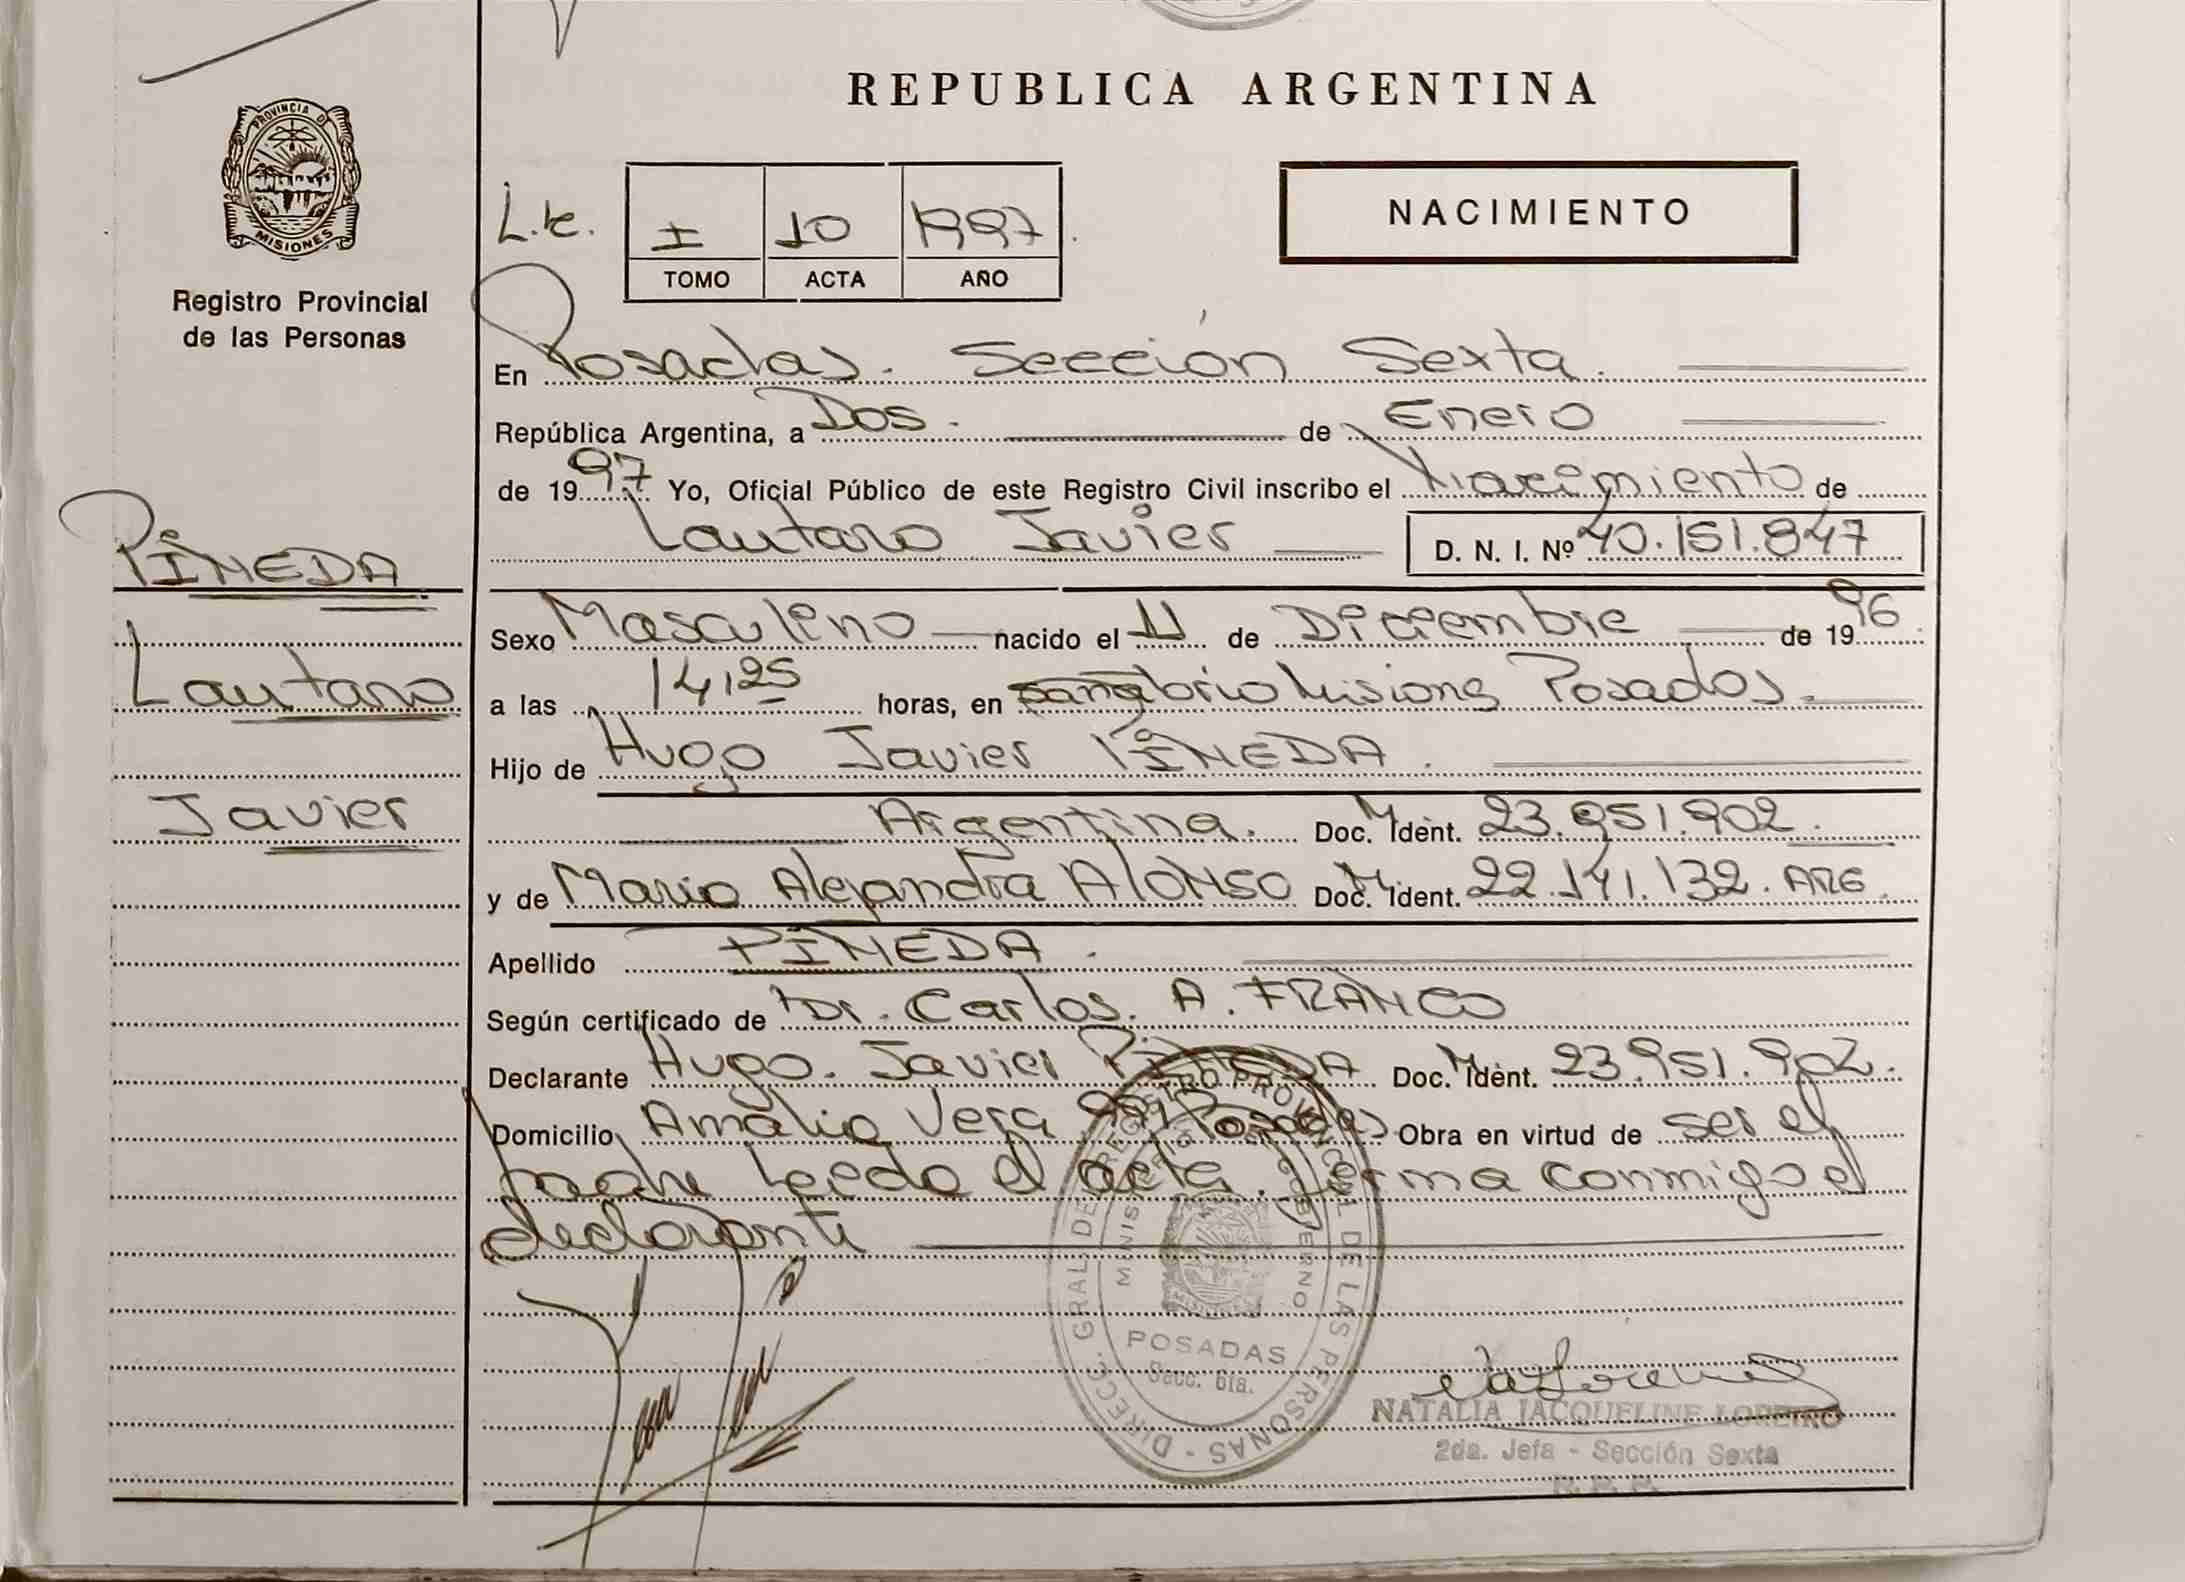 REPUBLICA ARGENTINA
PROVINCIA DE
MISIONES
Registro Provincial
de las Personas
NACIMIENTO
I 10 1997
TOMO ACTA AÑO
En Posadas. Sección Sexta.
República Argentina, a Dos. de Enero
de 1997 Yo, Oficial Público de este Registro Civil inscribo el Nacimiento de
Lautaro Javier D. N. I. Nº 40.151.847
PINEDA
Lautaro
Javier
Sexo Masculino nacido el 11 de Diciembre de 1996.
a las 14,25 horas, en Misiones Posadas.
Hijo de Hugo Javier PINEDA.
Argentina. Doc. Ident. 23.951.902.
y de Maria Alejandra ALONSO Doc. Ident. 22.141.132. ARG.
Apellido PINEDA.
Según certificado de Dr. Carlos. A. FRANCO
Declarante Hugo. Javier PINEDA Doc. Ident. 23.951.902.
Domicilio Amalia Vera Posadas Obra en virtud de ser el
padre Leida el acta. firma conmigo el
declarante
DIREC. GRAL. DE REGISTRO PROVINCIAL DE LAS PERSONAS
MINISTERIO DE GOBIERNO
MISIONES
POSADAS
Secc. 6ta.
NATALIA JACQUELINE LOREIRO
2da. Jefa - Sección Sexta
R. P. P.